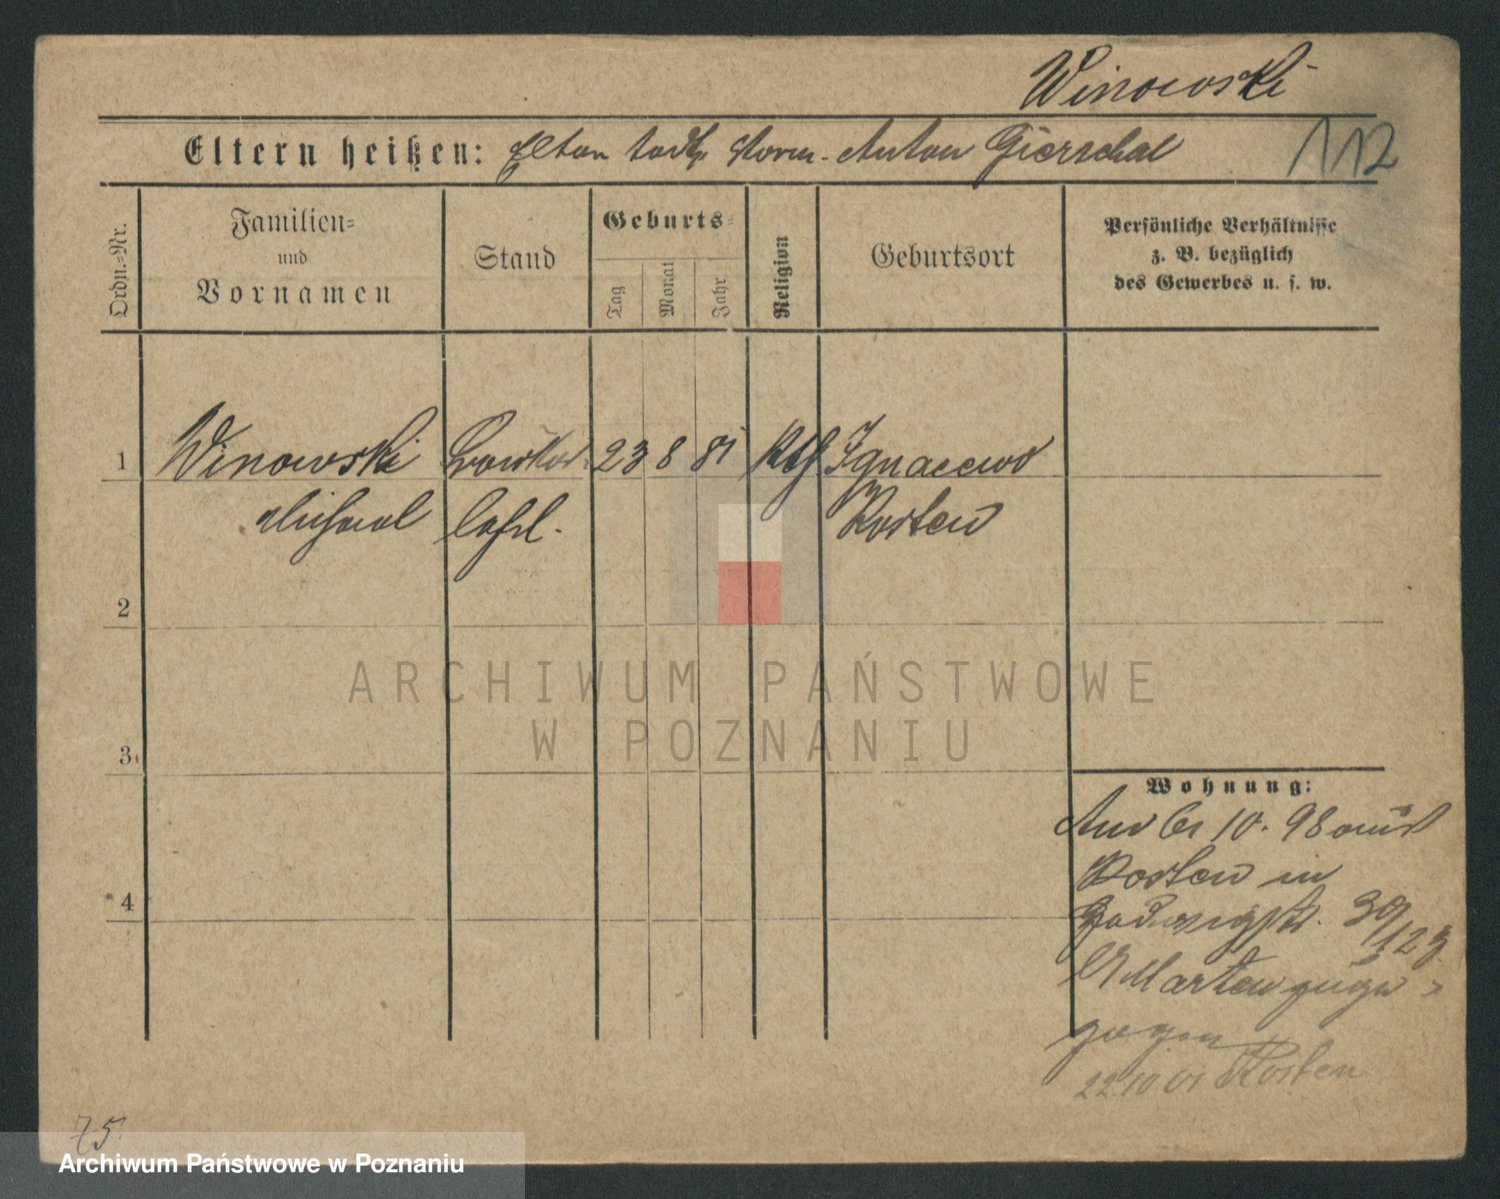 Winowski
112
Eltern heißen: Eltern todt, Vorm. Anton Gierschal
Ordn.-Nr.
Familien-
und
Vornamen
Stand
Geburts-
Tag
Monat
Jahr
Religion
Geburtsort
Persönliche Verhältnisse
z. B. bezüglich
des Gewerbes u. s. w.
1 Winowski 23 8 81 Kth Ignacewo
Michael Kosten
2
3
4
Wohnung:
Am 10. 98 aus
Kosten in
30/123
St Marten zuge-
zogen
22 10 01 Kosten
75.
ARCHIWUM PAŃSTWOWE
W POZNANIU
Archiwum Państwowe w Poznaniu